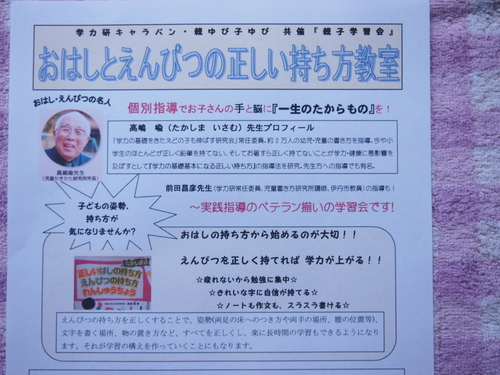 学力研キャラバン・親ゆび子ゆび 共催『親子学習会』
おはしとえんぴつの正しい持ち方教室
おはし・えんぴつの名人
個別指導でお子さんの手と脳に『一生のたからもの』を!
高嶋 喩(たかしま いさむ)先生プロフィール
「学力の基礎をきたえどの子も伸ばす研究会」常任委員。約2万人の幼児・児童の書き方を指導。今や小
学生のほとんどが正しく鉛筆を持てない、そしてお箸すら正しく持てないことが学力・健康に悪影響を
及ぼすとして『学力の基礎基本になる正しい持ち方』の指導法を研究。先生方への指導でも有名。
高嶋喩先生
(児童かきかた研究所所長)
前田昌彦先生(学力研常任委員、児童書き方研究所講師、伊丹市教員)の指導も!
~実践指導のベテラン揃いの学習会です!
子どもの姿勢、
持ち方が
気になりませんか?
おはしの持ち方から始めるのが大切!!
えんぴつを正しく持てれば 学力が上がる!!
正しいはしの持ち方
えんぴつの持ち方
れんしゅうちょう
☆疲れないから勉強に集中☆
☆きれいな字に自信が持てる☆
☆ノートも作文も、スラスラ書ける☆
えんぴつの持ち方を正しくすることで、姿勢(両足の床へのつき方や両手の場所、腰の位置等)、
文字を書く場所、物の置き方など、すべてを正しくし、楽に長時間の学習もできるようになり
ます。それが学習の構えを作っていくことにもなります。